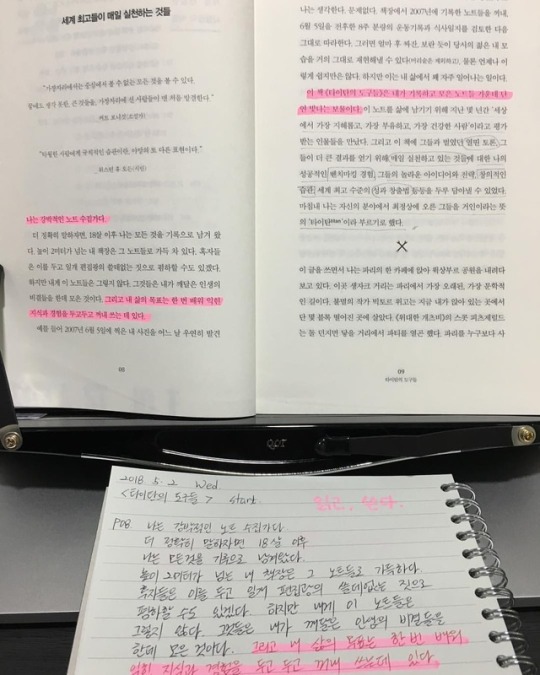 세계 최고들이 매일 실천하는 것들
"가장자리에서는 중심에서 볼 수 없는 모든 것을 볼 수 있다.
꿈에도 생각 못한, 큰 것들을, 가장자리에 선 사람들이 맨 처음 발견한다."
커트 보니것(소설가)
"탁월한 사람에게 규칙적인 습관이란, 야망의 또 다른 표현이다."
위스턴 휴 오든(시인)
나는 강박적인 노트 수집가다.
더 정확히 말하자면, 18살 이후 나는 모든 것을 기록으로 남겨 왔
다. 높이 2미터가 넘는 내 책장은 그 노트들로 가득 차 있다. 혹자들
은 이를 두고 일개 편집광의 쓸데없는 짓으로 폄하할 수도 있겠다.
하지만 내게 이 노트들은 그렇지 않다. 그것들은 내가 깨달은 인생의
비결들을 한데 모은 것이다. 그리고 내 삶의 목표는 한 번 배워 익힌
지식과 경험을 두고두고 꺼내 쓰는 데 있다.
예를 들어 2007년 6월 5일에 찍은 내 사진을 어느 날 우연히 발견
08
나는 생각한다. 문제없다. 책장에서 2007년에 기록한 노트들을 꺼내,
6월 5일을 전후한 8주 분량의 운동기록과 식사일지를 검토한 다음
그대로 따라한다. 그러면 얼마 후 하산, 보란 듯이 당시의 젊은 내 모
습을 거의 그대로 재현해낼 수 있다(머리숱은 제외하고). 물론 언제나 이
렇게 쉽지만은 않다. 하지만 이는 내 삶에서 꽤 자주 일어나는 일이다.
이 책 《타이탄의 도구들》은 내가 기록하고 모은 노트들 가운데 단
연 빛나는 보물이다. 이 노트를 삶에 남기기 위해 지난 몇 년간 '세상
에서 가장 지혜롭고, 가장 부유하고, 가장 건강한 사람'이라고 평가
받는 인물들을 만났다. 그리고 이 책에 그들과 벌였던 열띤 토론, 그
들이 더 큰 결과를 얻기 위해 매일 실천하고 있는 것들에 대한 나의
성공적인 벤치마킹 경험, 그들의 놀라운 아이디어와 전략, 창의적인
습관, 세계 최고 수준의 성과 창출법 등을 두루 담아낼 수 있었다.
마침내 나는 자신의 분야에서 최정상에 오른 그들을 거인이라는 뜻
의 '타이탄titan'이라 부르기로 했다.
이 글을 쓰면서 나는 파리의 한 카페에 앉아 뤽상부르 공원을 내려다
보고 있다. 이곳 생자크 거리는 파리에서 가장 오래된, 가장 문학적
인 길이다. 불멸의 작가 빅토르 위고는 지금 내가 앉아 있는 곳에서
단 몇 블록 떨어진 곳에 살았다. 《위대한 개츠비》의 스콧 피츠제럴드
는 틀 던지만 닿을 거리에서 파티를 열곤 했다. 파리를 누구보다 사
09
타이탄의 도구들
2018. 5. 2 Wed.
<타이탄의 도구들> start.
읽고, 쓴다.
P08 나는 강박적인 노트 수집가다
더 정확히 말하자면 18살 이후
나는 모든것을 기록으로 남겨왔다.
높이 2미터가 넘는 내 책장은 그 노트들로 가득하다.
혹자들은 이를 두고 일개 편집광의 쓸데없는 짓으로
폄하할 수도 있겠다. 하지만 내게 이 노트들은
그렇지 않다. 그것들은 내가 깨달은 인생의 비결들을
한데 모은 것이다. 그리고 내 삶의 목표는 한번 배워
익힌 지식과 경험을 두고 두고 꺼내 쓰는데 있다.